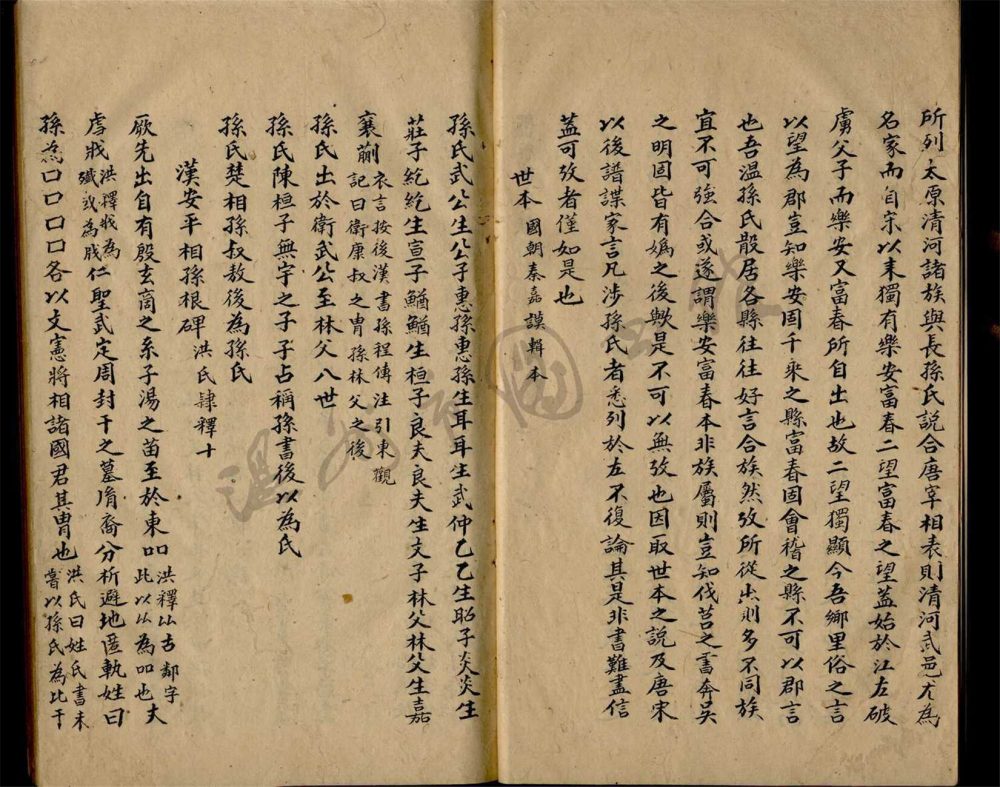 所列太原清河諸族與長孫氏説合唐宰相表則清河武邑尤為
名家而自宋以來獨有樂安富春二望富春之望蓋始於江左破
虜父子而樂安又富春所自出也故二望獨顯今吾鄉里俗之言
以望為郡豈知樂安固千乘之縣富春固會稽之縣不可以郡言
也吾溫孫氏散居各縣往往好言合族然攷所從出則多不同族
宜不可強合或遂謂樂安富春本非族屬則豈知伐莒之書奔吳
之明固皆有嬀之後歟是不可以無攷也因取世本之説及唐宋
以後譜諜家言凡涉孫氏者悉列於左不復論其是非書難盡信
蓋可攷者僅如是也
世本 國朝秦嘉謨輯本
孫氏武公生公子惠孫惠孫生耳耳生武仲乙乙生昭子炎炎生
莊子紇紇生宣子鰌鰌生桓子良夫良夫生文子林父林父生嘉
襄蒯 衣言按後漢書孫程傳注引東觀
記曰衛康叔之胄孫林父之後
孫氏出於衛武公至林父八世
孫氏陳桓子無宇之子子占稱孫書後以為氏
孫氏楚相孫叔敖後為孫氏
漢安平相孫根碑 洪氏隸釋十
厥先出自有殷玄商之系子湯之苗至於東吅 洪釋厸古鄰字
此以厸為吅也 大
虐戕 洪釋戕為
殲或為戕 仁聖武定周封干之墓胤裔分析避地匿軌姓曰
孫為口口口口各以文憲將相諸國君其胄也 洪氏曰姓氏書未
嘗以孫氏為比干
溫州市圖